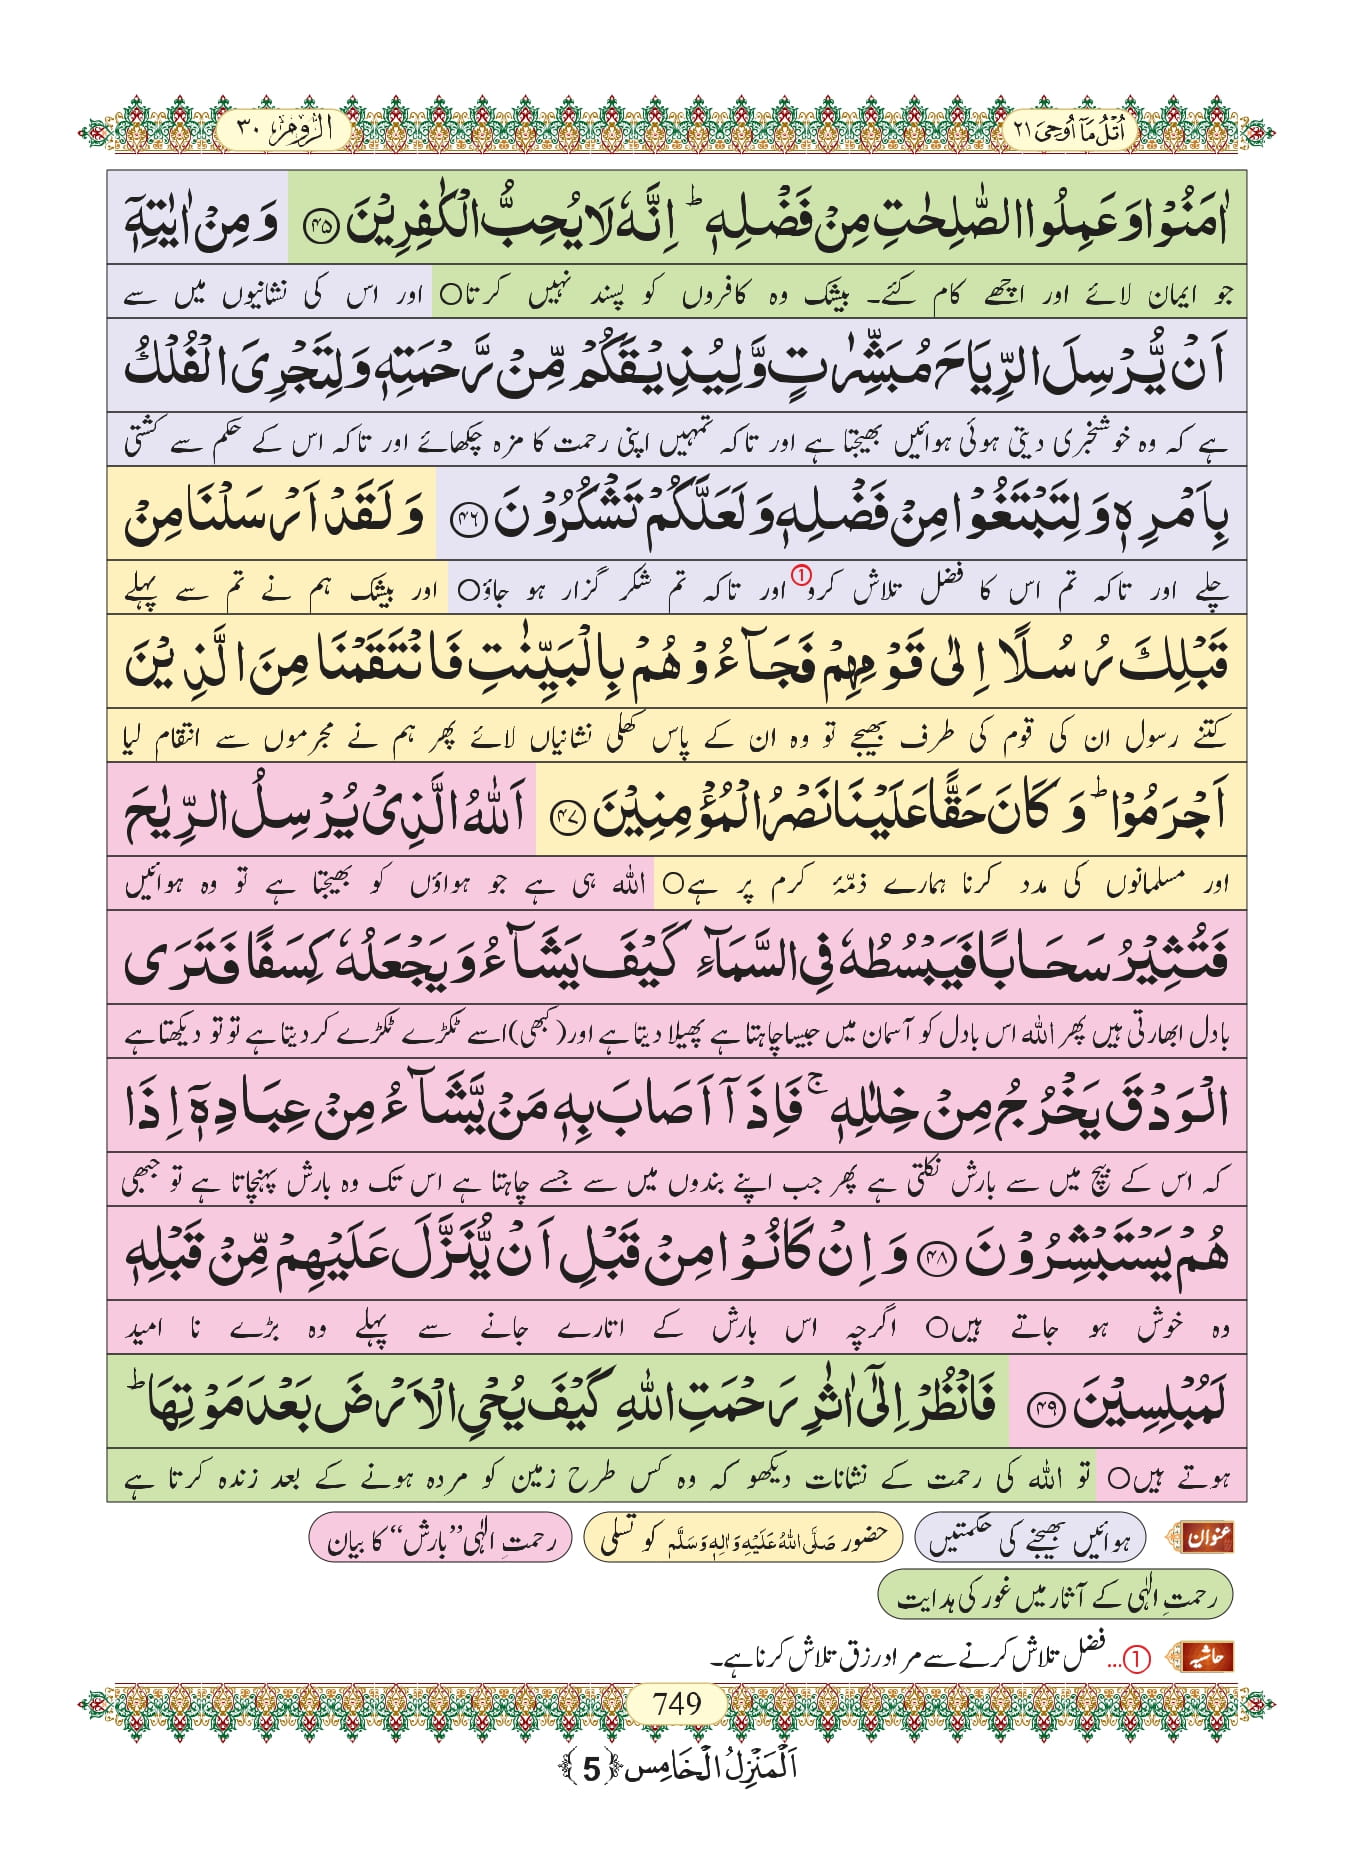 اُتْلُ مَآ اُوْحِیَ ۲۱
الرُّوْمُ ۳۰
اٰمَنُوْا وَعَمِلُوا الصّٰلِحٰتِ مِنْ فَضْلِهٖ ؕ اِنَّهٗ لَا یُحِبُّ الْكٰفِرِیْنَ ﴿۴۵﴾ وَ مِنْ اٰیٰتِهٖۤ
جو ایمان لائے اور اچھے کام کئے۔ بیشک وہ کافروں کو پسند نہیں کرتا○ اور اس کی نشانیوں میں سے
اَنْ یُّرْسِلَ الرِّیَاحَ مُبَشِّرٰتٍ وَّ لِیُذِیْقَكُمْ مِّنْ رَّحْمَتِهٖ وَ لِتَجْرِیَ الْفُلْكُ
ہے کہ وہ خوشخبری دیتی ہوئی ہوائیں بھیجتا ہے اور تاکہ تمہیں اپنی رحمت کا مزہ چکھائے اور تاکہ اس کے حکم سے کشتی
بِاَمْرِهٖ وَ لِتَبْتَغُوْا مِنْ فَضْلِهٖ وَ لَعَلَّكُمْ تَشْكُرُوْنَ ﴿۴۶﴾ وَ لَقَدْ اَرْسَلْنَا مِنْ
چلے اور تاکہ تم اس کا فضل تلاش کرو① اور تاکہ تم شکر گزار ہو جاؤ○ اور بیشک ہم نے تم سے پہلے
قَبْلِكَ رُسُلًا اِلٰى قَوْمِهِمْ فَجَآءُوْهُمْ بِالْبَیِّنٰتِ فَانْتَقَمْنَا مِنَ الَّذِیْنَ
کتنے رسول ان کی قوم کی طرف بھیجے تو وہ ان کے پاس کھلی نشانیاں لائے پھر ہم نے مجرموں سے انتقام لیا
اَجْرَمُوْا ؕ وَ كَانَ حَقًّا عَلَیْنَا نَصْرُ الْمُؤْمِنِیْنَ ﴿۴۷﴾ اَللّٰهُ الَّذِیْ یُرْسِلُ الرِّیٰحَ
اور مسلمانوں کی مدد کرنا ہمارے ذمّۂ کرم پر ہے○ اللہ ہی ہے جو ہواؤں کو بھیجتا ہے تو وہ ہوائیں
فَتُثِیْرُ سَحَابًا فَیَبْسُطُهٗ فِی السَّمَآءِ كَیْفَ یَشَآءُ وَ یَجْعَلُهٗ كِسَفًا فَتَرَى
بادل ابھارتی ہیں پھر اللہ اس بادل کو آسمان میں جیسا چاہتا ہے پھیلا دیتا ہے اور (کبھی) اسے ٹکڑے ٹکڑے کردیتا ہے تو تو دیکھتا ہے
الْوَدْقَ یَخْرُجُ مِنْ خِلٰلِهٖ ۚ فَاِذَاۤ اَصَابَ بِهٖ مَنْ یَّشَآءُ مِنْ عِبَادِهٖۤ اِذَا
کہ اس کے بیچ میں سے بارش نکلتی ہے پھر جب اپنے بندوں میں سے جسے چاہتا ہے اس تک وہ بارش پہنچاتا ہے تو جبھی
هُمْ یَسْتَبْشِرُوْنَ ﴿۴۸﴾ وَ اِنْ كَانُوْا مِنْ قَبْلِ اَنْ یُّنَزَّلَ عَلَیْهِمْ مِّنْ قَبْلِهٖ
وہ خوش ہو جاتے ہیں○ اگرچہ اس بارش کے اتارے جانے سے پہلے وہ بڑے نا امید
لَمُبْلِسِیْنَ ﴿۴۹﴾ فَانْظُرْ اِلٰۤى اٰثٰرِ رَحْمَتِ اللّٰهِ كَیْفَ یُحْیِ الْاَرْضَ بَعْدَ مَوْتِهَا ؕ
ہوتے ہیں○ تو اللہ کی رحمت کے نشانات دیکھو کہ وہ کس طرح زمین کو مردہ ہونے کے بعد زندہ کرتا ہے
عنوان ہوائیں بھیجنے کی حکمتیں حضور صَلَّى اللهُ عَلَيْهِ وَاٰلِهٖ وَسَلَّم کو تسلی رحمتِ الٰہی ”بارش“ کا بیان
رحمتِ الٰہی کے آثار میں غور کی ہدایت
حاشیہ ①...فضل تلاش کرنے سے مراد رزق تلاش کرنا ہے۔
749
اَلْمَنْزِلُ الْخَامِس ﴿5﴾